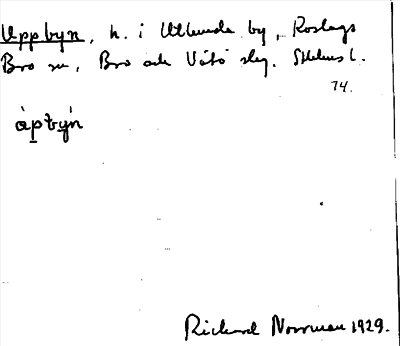 Uppbyn, h. i Utlunda by, Roslags
Bro sn, Bro och Vätö skg. Sthlms l.
74.
àpbýn
Richard Norrman 1929.